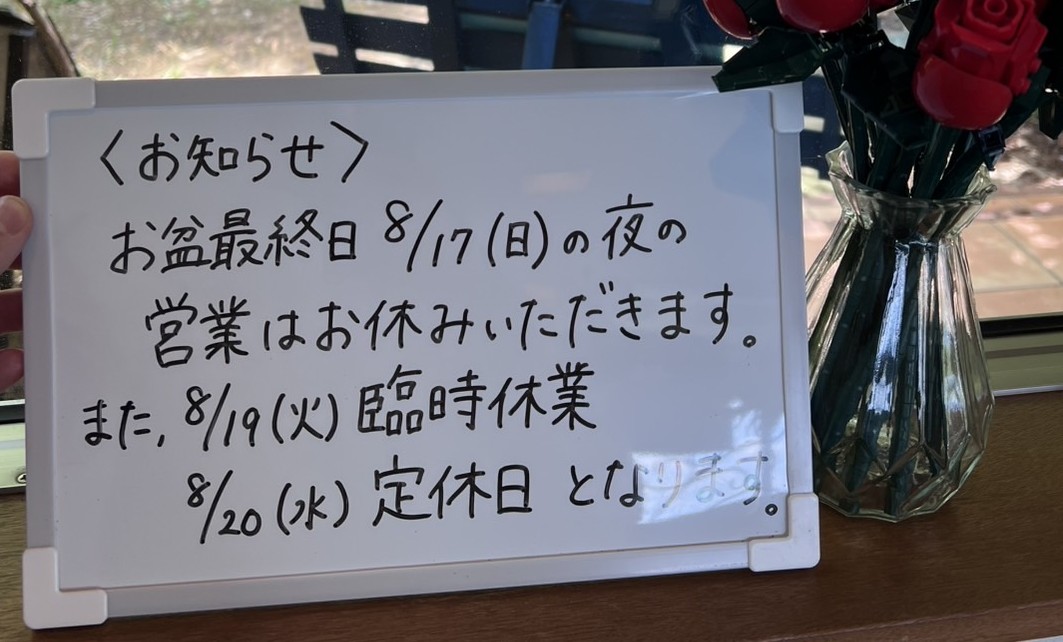 〈お知らせ〉
お盆最終日 8/17(日)の夜の
営業はお休みいただきます。
また、8/19(火)臨時休業
8/20(水)定休日 となります。